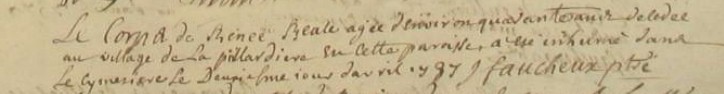 Le Corps de Renee Reale agée denviron quarante ans decedee
au village de La pillardiere en cette paroisse, a esté inhumé dans
Le Cymetiere Le Deuxiesme jour davril 1787 J faucheux ptre